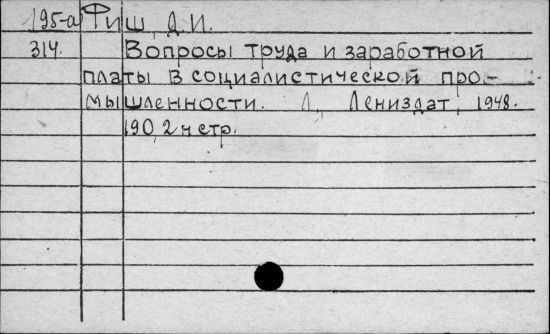 195-а Фиш, Д. И.
314. Вопросы труда и заработной
платы в социалистической про-
мышленности. Л., Лениздат, 1948.
190, 2 н стр.